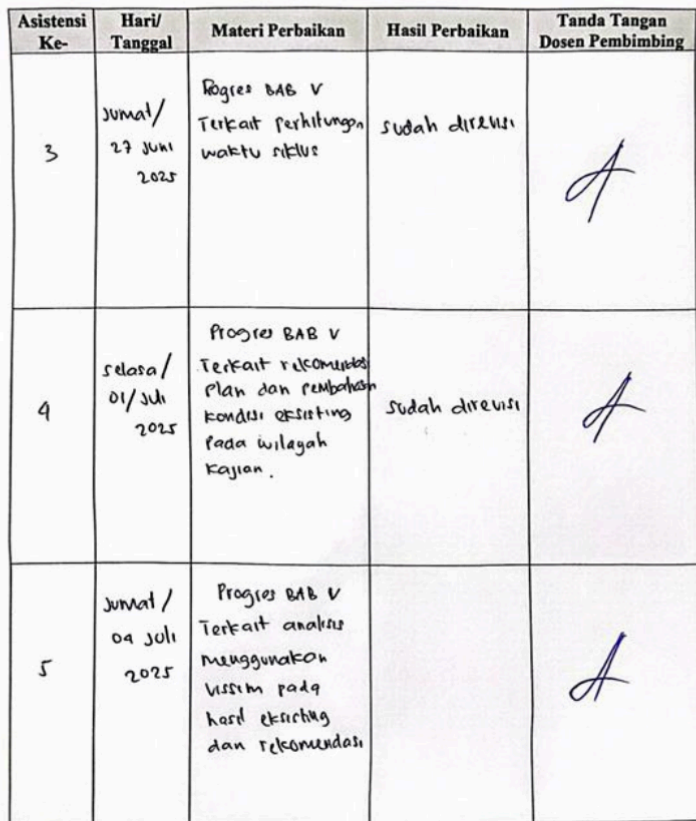 Asistensi Ke-
Hari/ Tanggal
Materi Perbaikan
Hasil Perbaikan
Tanda Tangan Dosen Pembimbing
3
Jumat/
27 Juni
2025
Progres BAB V
Terkait Perhitungan
waktu siklus
sudah direvisi
4
selasa/
01/Juli
2025
Progres BAB V
Terkait rekomendasi
Plan dan pembahasan
kondisi eksisting
Pada wilayah
Kajian.
sudah direvisi
5
Jumat/
04 Juli
2025
Progres BAB V
Terkait analisis
menggunakan
vissim pada
hasil eksisting
dan rekomendasi